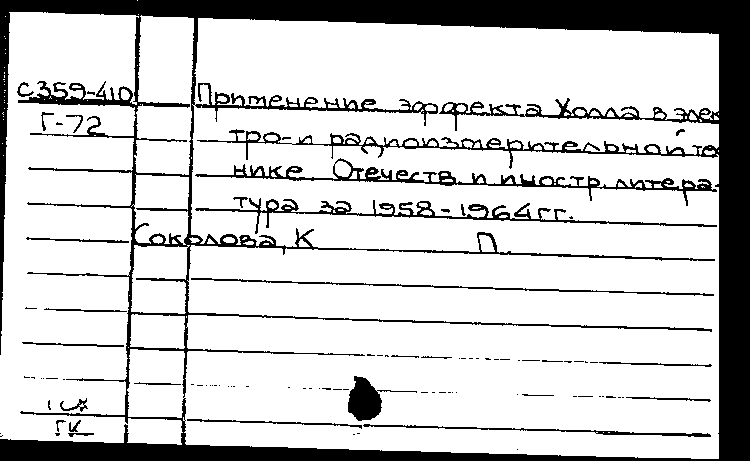 С359-410 Применение эффекта Холла в элек
Г-72 тро- и радиоизмерительной те
нике. Отечеств. и иностр. литера-
тура за 1958-1964 гг.
Соколова, К П.
ГК